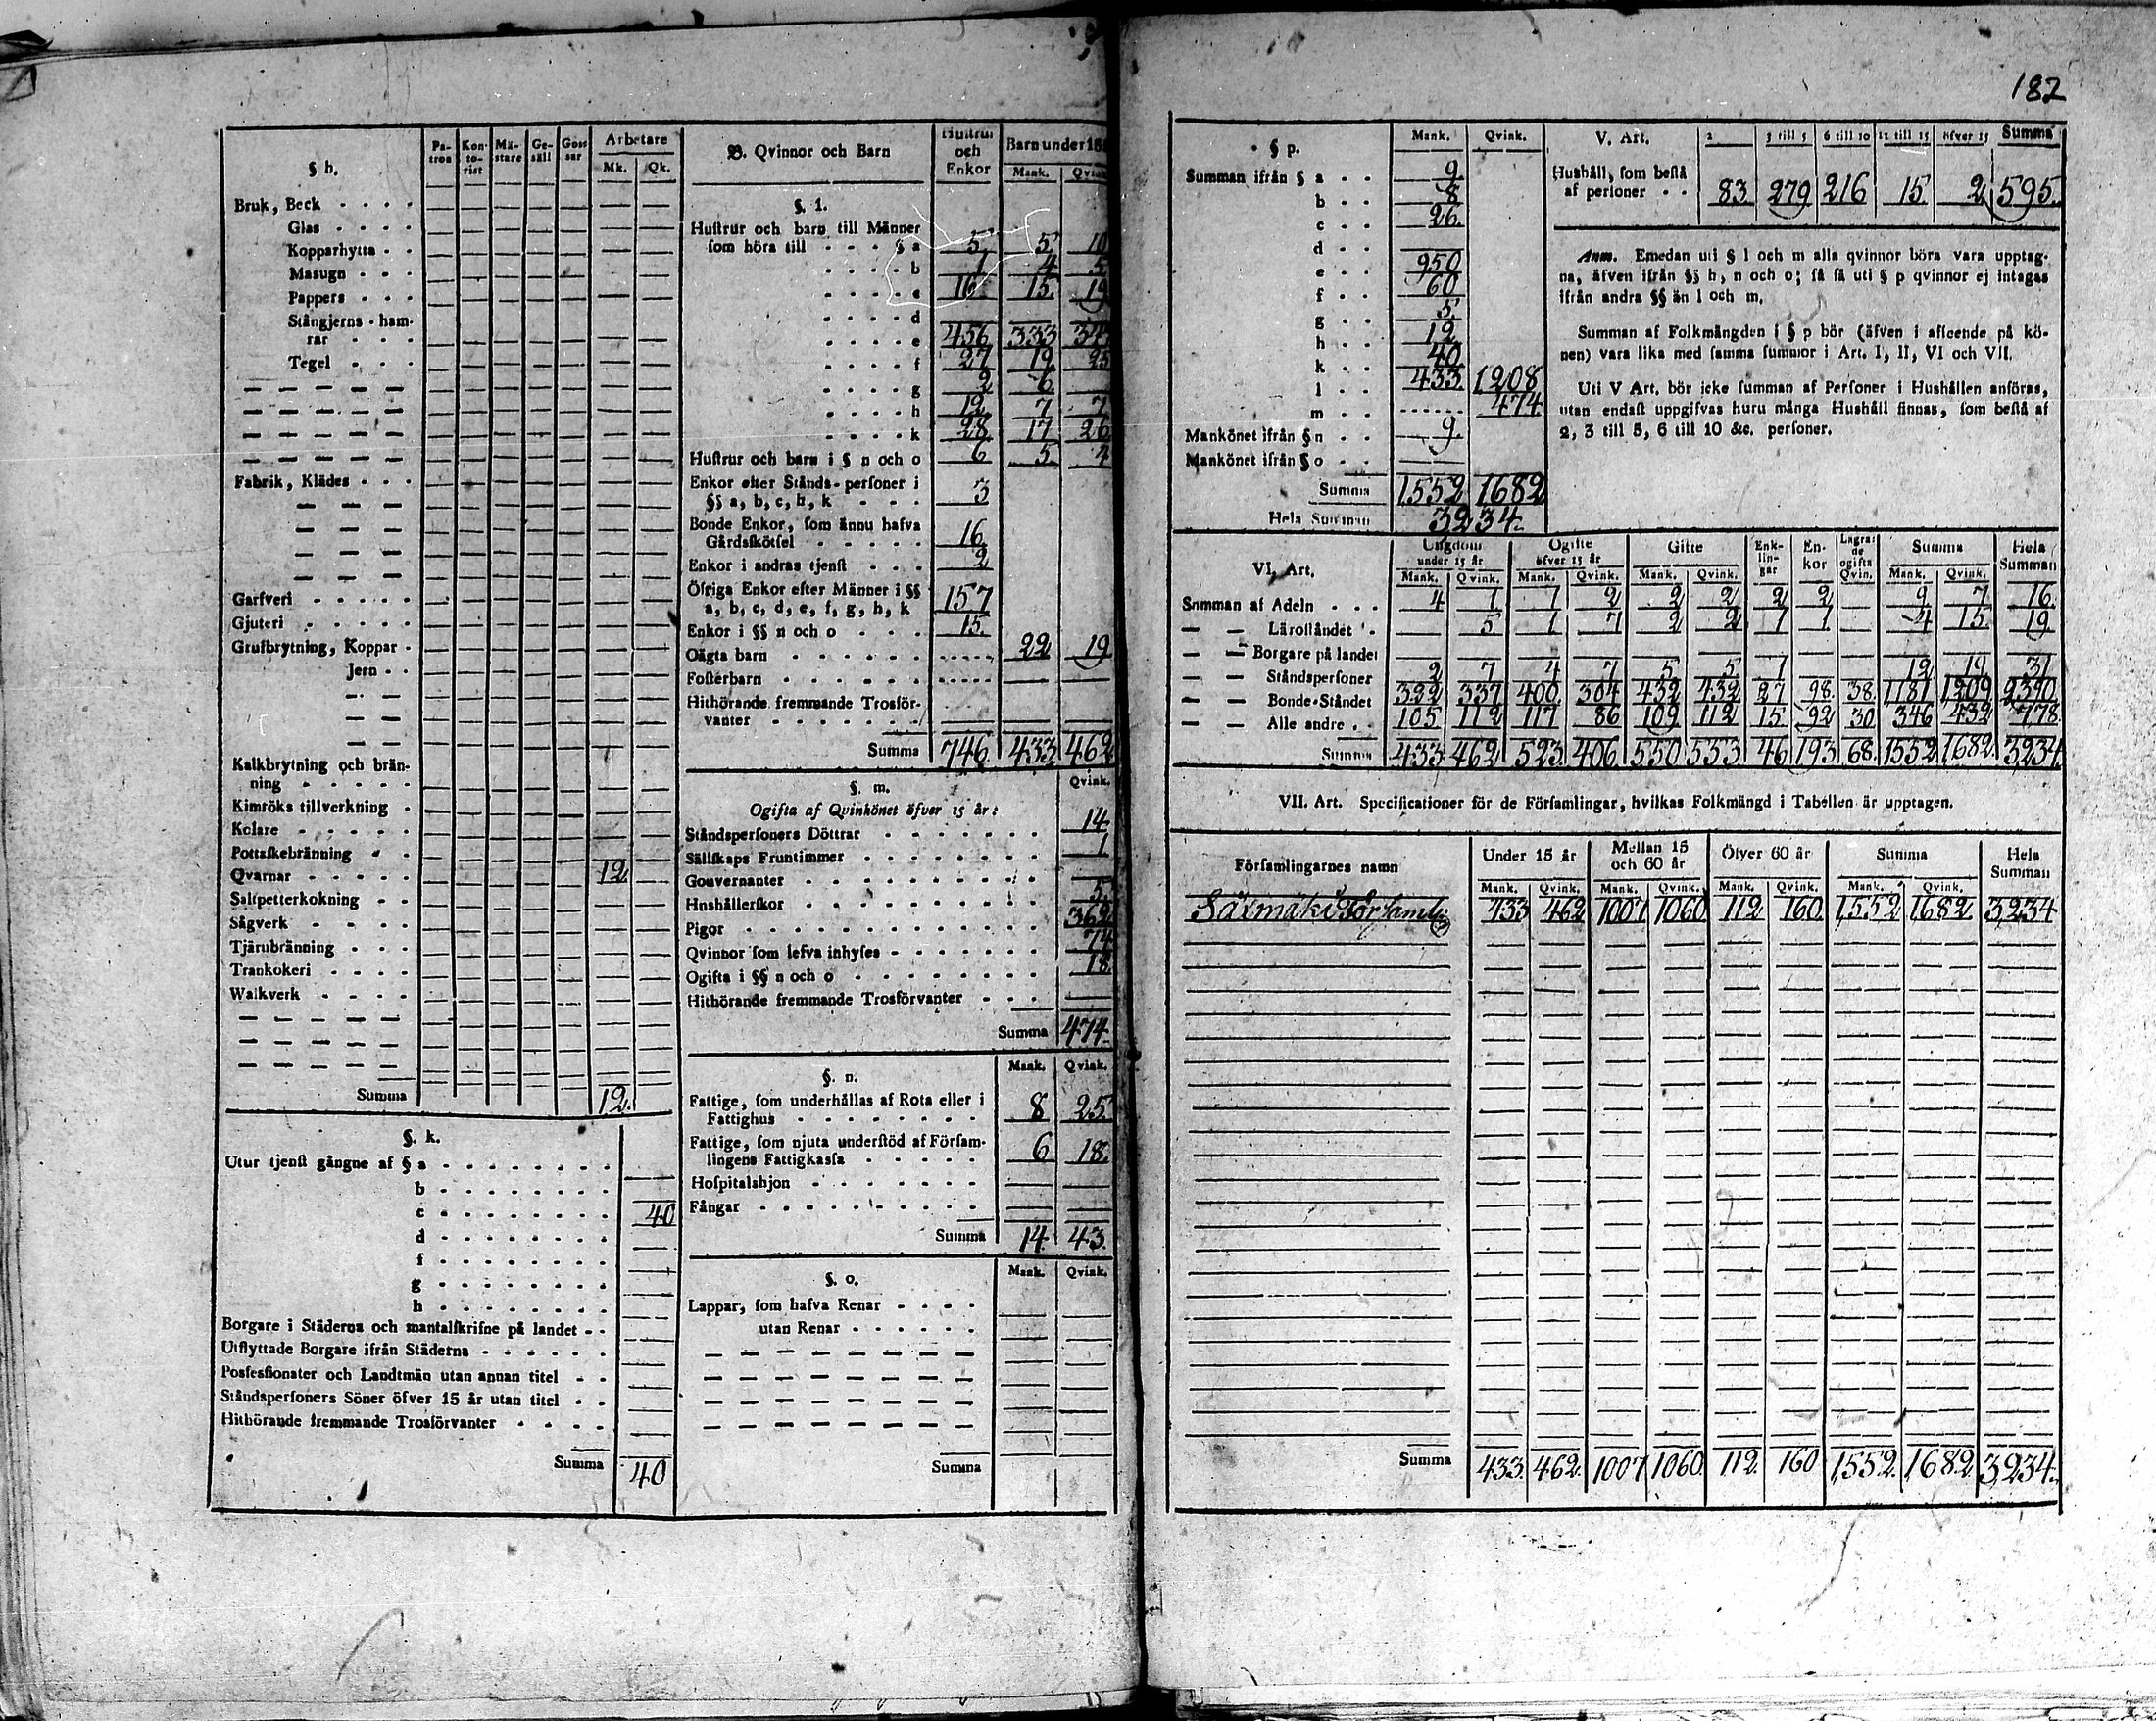 182
§ h.
Pa-tron Kon-to-rist Mä-stare Ge-säll Goss sar Arbetare
Mk. Qk.
Bruk, Beck
Glas
Kopparhytta
Masugn
Pappers
Stångjerns-ham-
rar
Tegel
Fabrik, Klädes
Garfveri
Gjuteri
Grufbrytning, Koppar
Jern
Kalkbrytning och brän-
ning
Kimröks tillverkning
Kolare
Pottaskebränning
Qvarnar 12
Salpetterkokning
Sågverk
Tjärubränning
Trankokeri
Walkverk
Summa 12.
§. k.
Utur tjenst gångne af § a
b
c 40
d
f
g
h
Borgare i Städerna och mantalskrifne på landet
Utflyttade Borgare ifrån Städerna
Possessionater och Landtmän utan annan titel
Ståndspersoners Söner öfver 15 år utan titel
Hithörande fremmande Trosförvanter
Summa 40
B. Qvinnor och Barn Hustrur och Enkor Barn under 15
Mank. Qvink
§. l.
Hustrur och barn till Männer
som höra till § a 5 5 10
b 1 4 5
c 16 15 19
d
e 456 333
f 27 19 25
g 2 6
h 12 7 7
k 28 17 26
Hustrur och barn i § n och o 6 5 4
Enkor efter Stånds-personer i
§§ a, b, c, h, k 3
Bonde Enkor, som ännu hafva
Gårdsskötsel 16
Enkor i andras tjenst 2
Öfriga Enkor efter Männer i §§
a, b, c, d, e, f, g, h, k 157
Enkor i §§ n och o 15.
Oägta barn 22 19
Fosterbarn
Hithörande fremmande Trosför-
vanter
Summa 746. 433 462
§. m. Qvink.
Ogifta af Qvinkönet öfver 15 år:
Ståndspersoners Döttrar 14
Sällskaps Fruntimmer 1
Gouvernanter
Hushållerskor 5
Pigor 362
Qvinnor som lefva inhyses 74
Ogifta i §§ n och o 18
Hithörande fremmande Trosförvanter
Summa 474.
§. n. Mank. Qvink.
Fattige, som underhållas af Rota eller i
Fattighus 8 25
Fattige, som njuta understöd af Försam-
lingens Fattigkassa 6 18.
Hospitalshjon
Fångar
Summa 14. 43.
§. o. Mank. Qvink.
Lappar, som hafva Renar
utan Renar
Summa
§ p. Mank. Qvink.
Summan ifrån § a 9
b 8
c 26
d
e 950
f 60
g 5
h 12
k 40
l 433 1208
m 474
Mankönet ifrån § n 9
Mankönet ifrån § o
Summa 1552 1682
Hela Summan 3234.
V. Art. 2 3 till 5 6 till 10 11 till 15 öfver 15 Summa
Hushåll, som bestå
af personer 83 279 216 15 2 595.
Anm. Emedan uti § l och m alla qvinnor böra vara upptag-
na, äfven ifrån §§ h, n och o; så få uti § p qvinnor ej intagas
ifrån andra §§ än l och m.
Summan af Folkmängden i § p bör (äfven i afseende på kö-
nen) vara lika med samma summor i Art. I, II, VI och VII.
Uti V Art. bör icke summan af Personer i Hushållen anföras,
utan endast uppgifvas huru många Hushåll finnas, som bestå af
2, 3 till 5, 6 till 10 &c. personer.
VI. Art. Ungdom under 15 år Ogifte öfver 15 år Gifte Enk-lin-gar En-kor Lägra-de ogifta Qvin. Summa Hela Summan
Mank. Qvink. Mank. Qvink. Mank. Qvink. Mank. Qvink.
Summan af Adeln 4 1 1 2 2 2 2 2 9 7 16.
Läroståndet 5 1 7 2 2 1 1 4 15 19
Borgare på landet
Ståndspersoner 2 7 4 7 5 5 1 12 19 31
Bonde-Ståndet 322 337 400 304 432 432 27 98 38 1181 1209 2390
Alle andre 105 112 117 86 109 112 15 92 30 346 432 778
Summa 433 462 523 406 550 553 46 193 68 1552 1682 3234
VII. Art. Specificationer för de Församlingar, hvilkas Folkmängd i Tabellen är upptagen.
Församlingarnes namn Under 15 år Mellan 15 och 60 år Öfver 60 år Summa Hela Summan
Mank. Qvink. Mank. Qvink. Mank. Qvink. Mank. Qvink.
Säxmäki Församl: 433 462 1007 1060 112 160 1552 1682 3234
Summa 433. 462. 1007 1060 112. 160 1552. 1682. 3234.